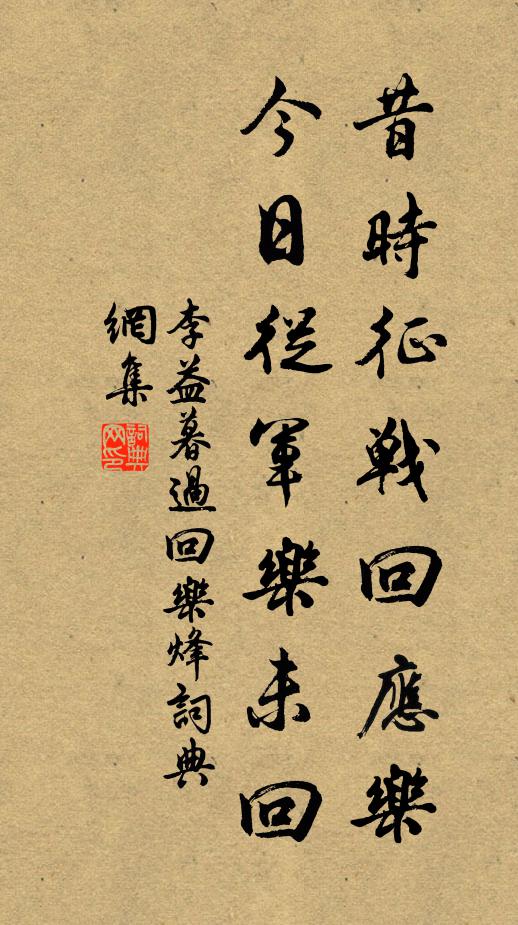 昔時征戰回應樂
今日從軍樂未回
李益暮過回樂烽詞典
網集
詞典
网印